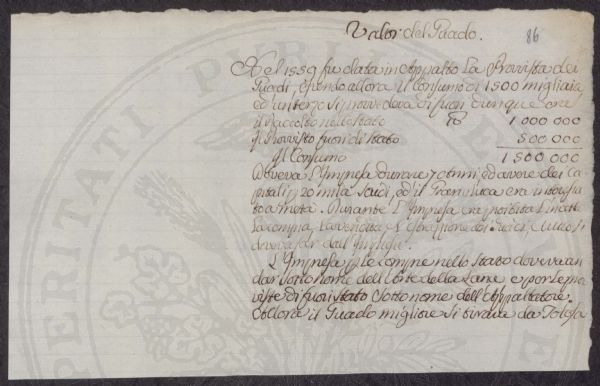 Valor del Guado. 86
Nel 1559 fu data in Appalto la Provvista dei
Guadi, essendo allora il Consumo di 1500 migliaia
ed un terzo si provvedeva di fuori dunque era
il Raccolto nello stato 1 000 000
Il Provvisto fuori di stato 500 000
Il Consumo 1 500 000
Doveva l'Impresa durare 7 anni, ed avere dei Ca
pitali 20 mila Scudi, ed il Granduca era interessa
to a metà. Durante l'Impresa era proibita l'incetta
la compra, la vendita dei Guadi, e tutto si
doveva far dall'Impresa.
L'Impresa p le compre nello Stato doveva an
dar sotto nome dell'Arte della Lana e per le prov
viste di fuori stato sotto nome dell'Appaltatore.
Allora il Guado migliore si tirava da Tolosa
PERITATI PUBLICAE